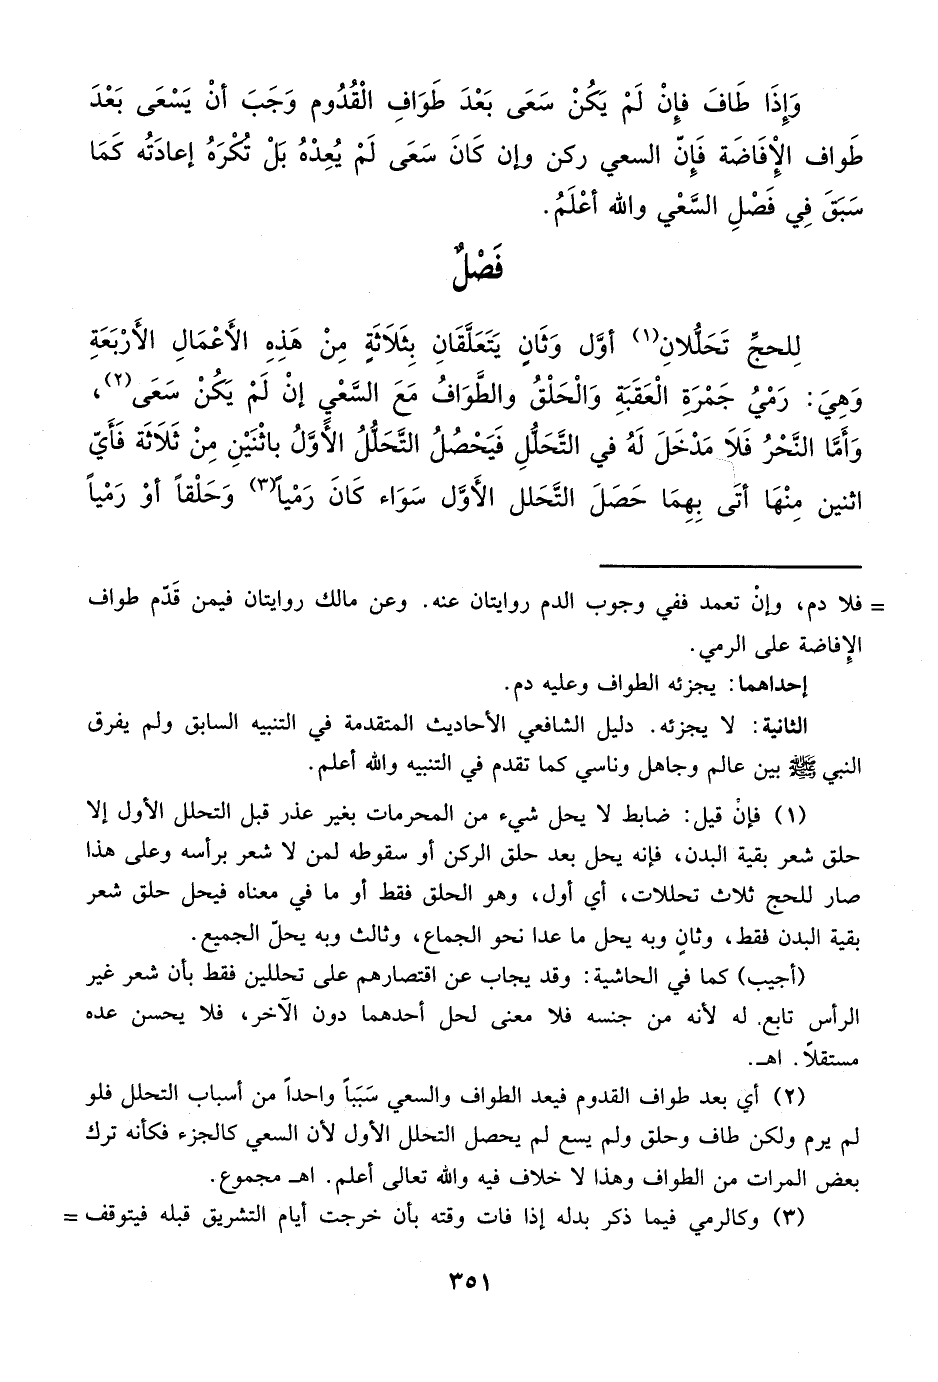 وَإِذَا طَافَ فإِنْ لَمْ يَكُنْ سَعَى بَعْدَ طَوَافِ الْقُدُوم وَجَبَ أنْ يَسْعَى بَعْدَ
طَواف الإِفَاضَة فَإِنّ السعي ركن وإن كَانَ سَعَى لَمْ يُعِدْهُ بَلْ تُكْرَهُ إعادَتُه كَمَا
سَبَقَ فِي فَصْلِ السَّعْي والله أعْلَمُ.
فَصْلٌ
لِلحجِّ تَحَلُّلانِ(١) أوَّل وَثَانٍ يَتَعَلَّقَانِ بِثَلاَثَةٍ مِنْ هَذِهِ الأَعْمَالِ الأَرْبَعَةِ
وَهِيَ: رَمْيُ جَمْرَةِ الْعَقَبَةِ وَالْحَلْقُ والطَّوَافُ مَعَ السَّعْي إنْ لَمْ يَكُنْ سَعَى(٢)،
وَأَمَّا النَّحْرُ فَلاَ مَدْخَلَ لَهُ في التَّحَلُّلِ فَيَحْصُلُ التَّحَلُّلُ الأَوَّلُ باثْنَيْنِ مِنْ ثَلاَثَة فَأَيّ
اثنين مِنْهَا أتَى بِهِمَا حَصَلَ التَّحَلل الأَوَّل سَوَاء كَانَ رَمْياً(٣) وَحَلْقاً أوْ رَمْياً
= فلا دم، وإنْ تعمد ففي وجوب الدم روايتان عنه. وعن مالك روايتان فيمن قَدّم طواف
الإِفاضة على الرمي.
إحداهما: يجزئه الطواف وعليه دم.
الثانية: لا يجزئه. دليل الشافعي الأحاديث المتقدمة في التنبيه السابق ولم يفرق
النبي ﷺ بين عالم وجاهل وناسي كما تقدم في التنبيه والله أعلم.
(١) فإنْ قيل: ضابط لا يحل شيء من المحرمات بغير عذر قبل التحلل الأول إلا
حلق شعر بقية البدن، فإنه يحل بعد حلق الركن أو سقوطه لمن لا شعر برأسه وعلى هذا
صار للحج ثلاث تحللات، أي أول، وهو الحلق فقط أو ما في معناه فيحل حلق شعر
بقية البدن فقط، وثانٍ وبه يحل ما عدا نحو الجماع، وثالث وبه يحلّ الجميع.
(أجيب) كما في الحاشية: وقد يجاب عن اقتصارهم على تحللين فقط بأن شعر غير
الرأس تابع له لأنه من جنسه فلا معنى لحل أحدهما دون الآخر، فلا يحسن عده
مستقلاً. اهـ.
(٢) أي بعد طواف القدوم فيعد الطواف والسعي سَبَباً واحداً من أسباب التحلل فلو
لم يرم ولكن طاف وحلق ولم يسع لم يحصل التحلل الأول لأن السعي كالجزء فكأنه ترك
بعض المرات من الطواف وهذا لا خلاف فيه والله تعالى أعلم. اهـ مجموع.
(٣) وكالرمي فيما ذكر بدله إذا فات وقته بأن خرجت أيام التشريق قبله فيتوقف =
٣٥١